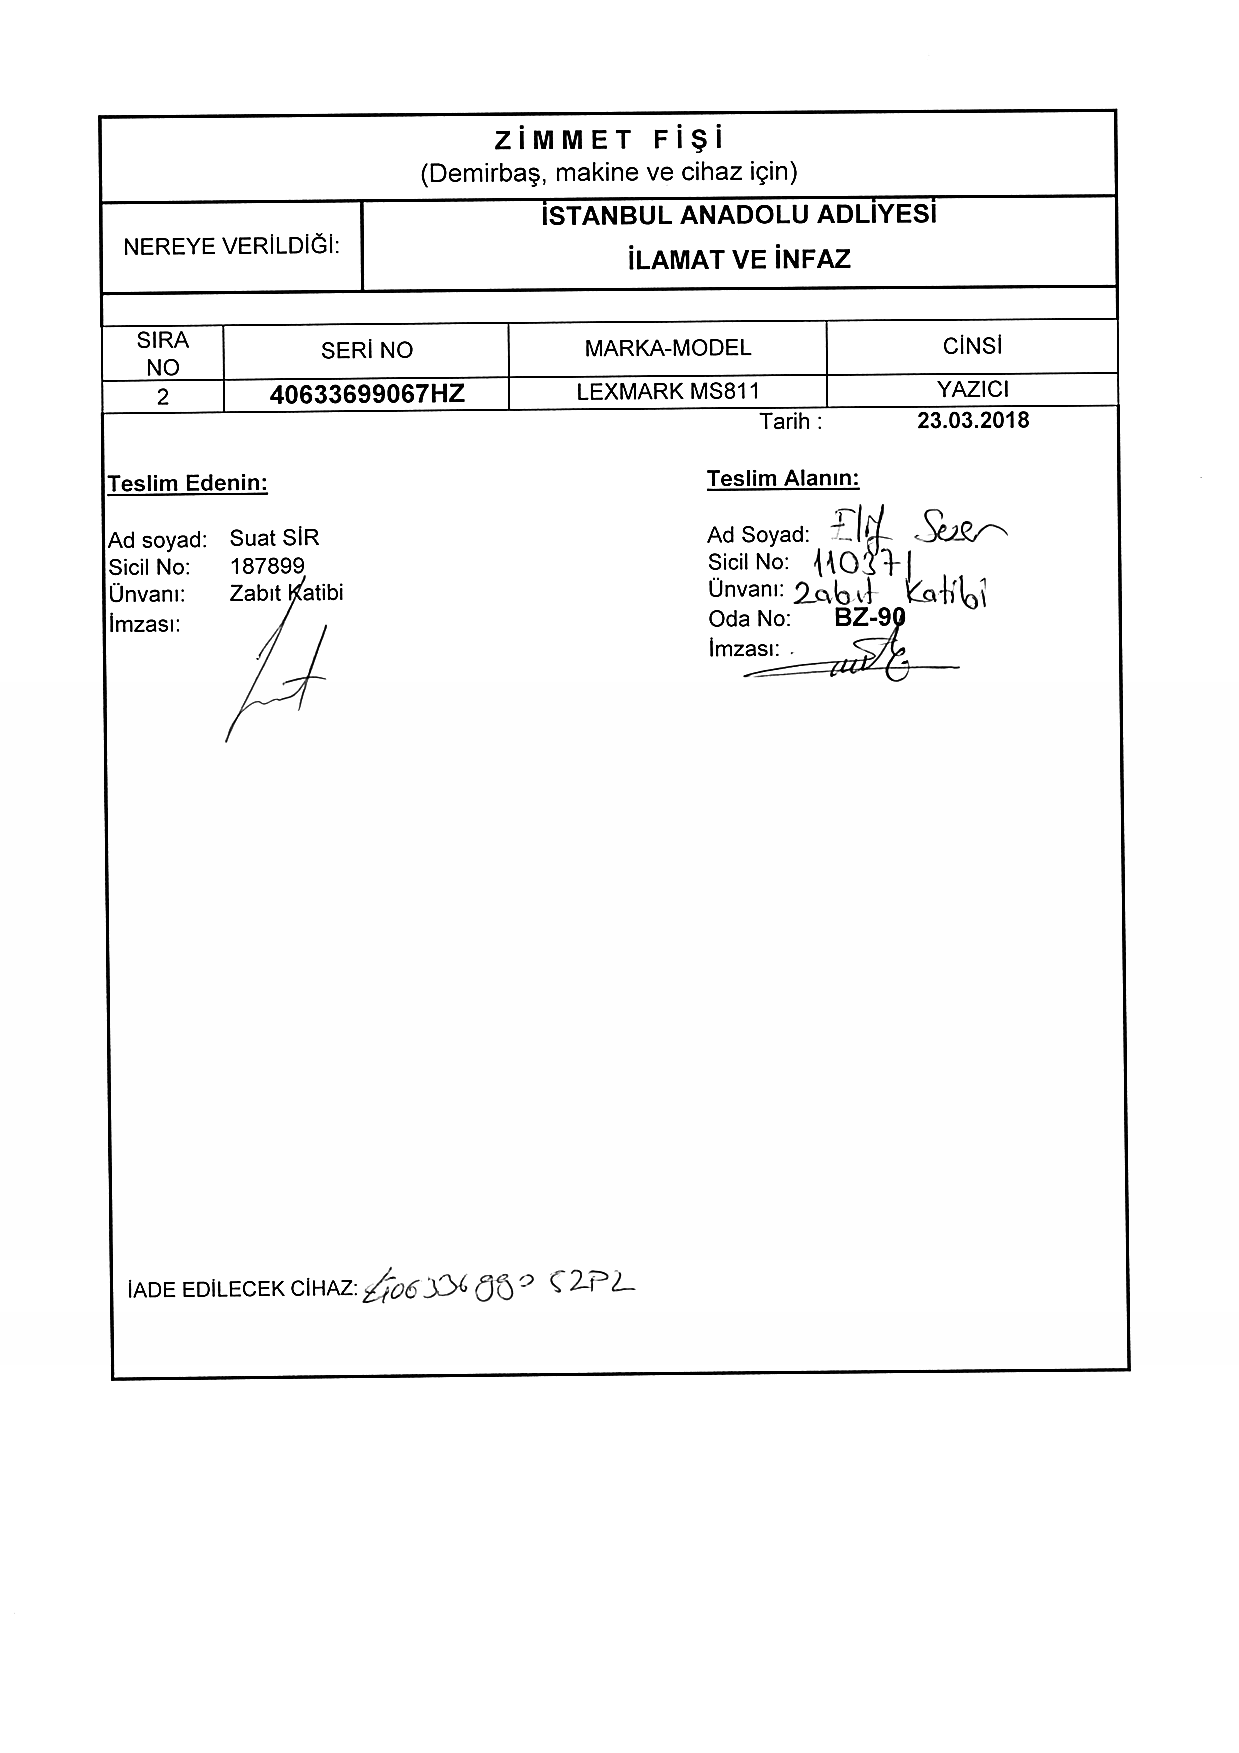 ZİMMET FİŞİ
(Demirbaş, makine ve cihaz için)
NEREYE VERİLDİĞİ:
İSTANBUL ANADOLU ADLİYESİ
İLAMAT VE İNFAZ
SIRA NO SERİ NO MARKA-MODEL CİNSİ
2 40633699067HZ LEXMARK MS811 YAZICI
Tarih : 23.03.2018
Teslim Edenin:
Ad soyad: Suat SİR
Sicil No: 187899
Ünvanı: Zabıt Katibi
İmzası:
Teslim Alanın:
Ad Soyad: Elif
Sicil No: 110371
Ünvanı: Zabıt Katibi
Oda No: BZ-90
İmzası:
İADE EDİLECEK CİHAZ: